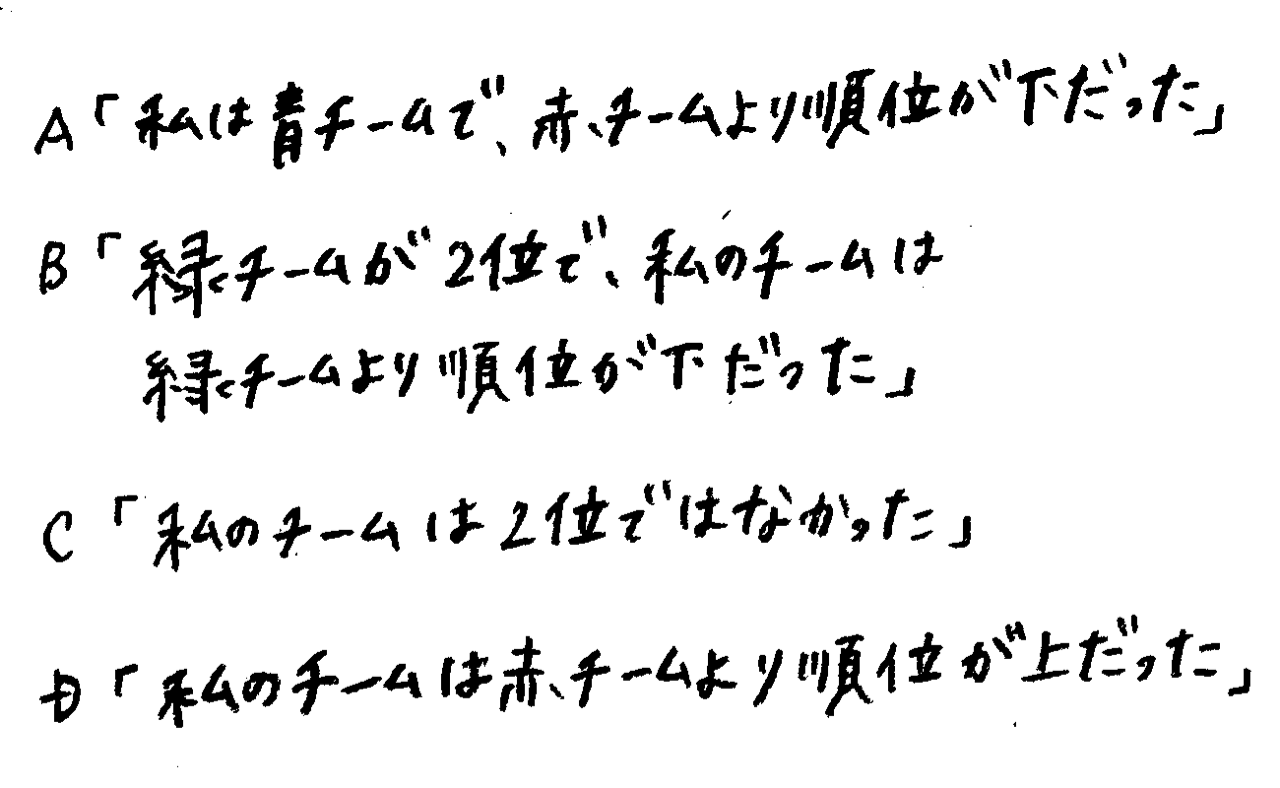 A「私は青チームで、赤チームより順位が下だった」
B「緑チームが2位で、私のチームは
緑チームより順位が下だった」
C「私のチームは2位ではなかった」
D「私のチームは赤チームより順位が上だった」